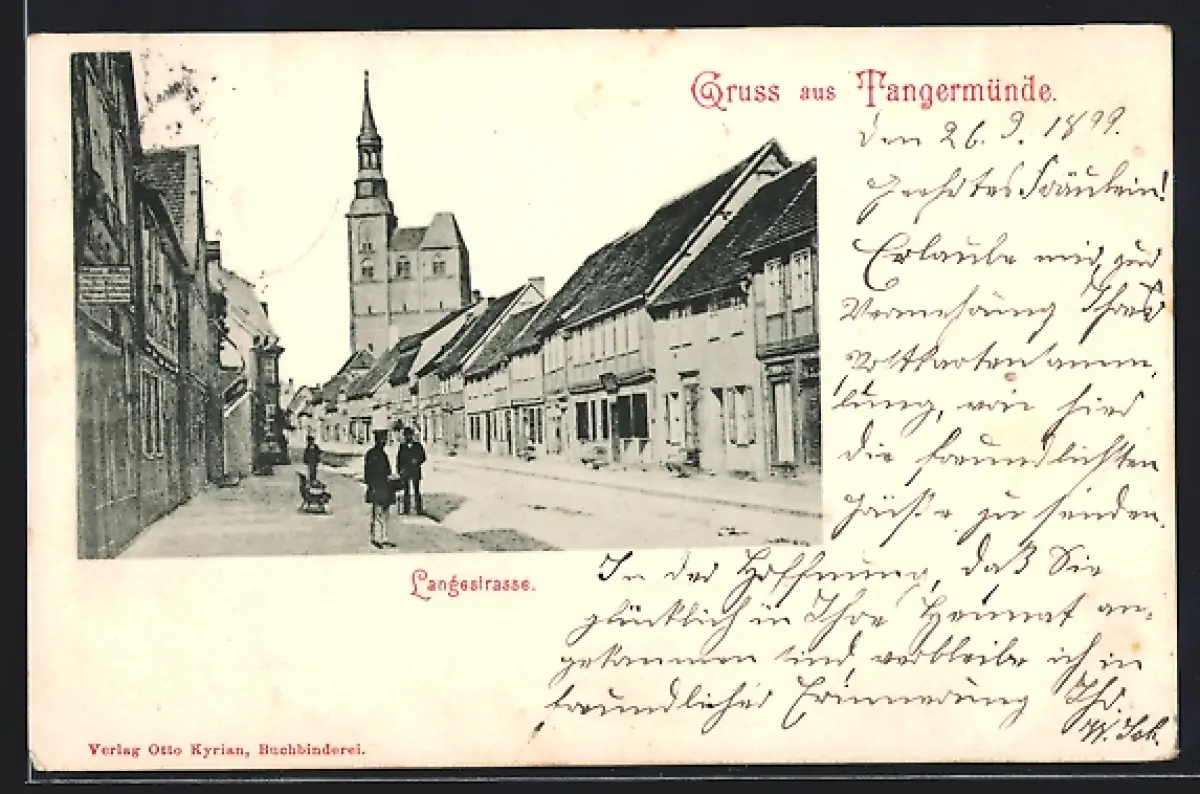 Gruss aus Tangermünde.
den 26. 9. 1899.
Geehrtes Fräulein!
Erlaube mir, zur
Vermehrung Ihrer
Postkartensamm-
lung, von hier
die freundlichsten
Grüße zu senden.
In der Hoffnung, daß Sie
glücklich in Ihre Heimat an-
gekommen sind, verbleibe ich in
freundlicher Erinnerung Ihr
W. Sch.
Langestrasse.
Verlag Otto Kyrian, Buchbinderei.